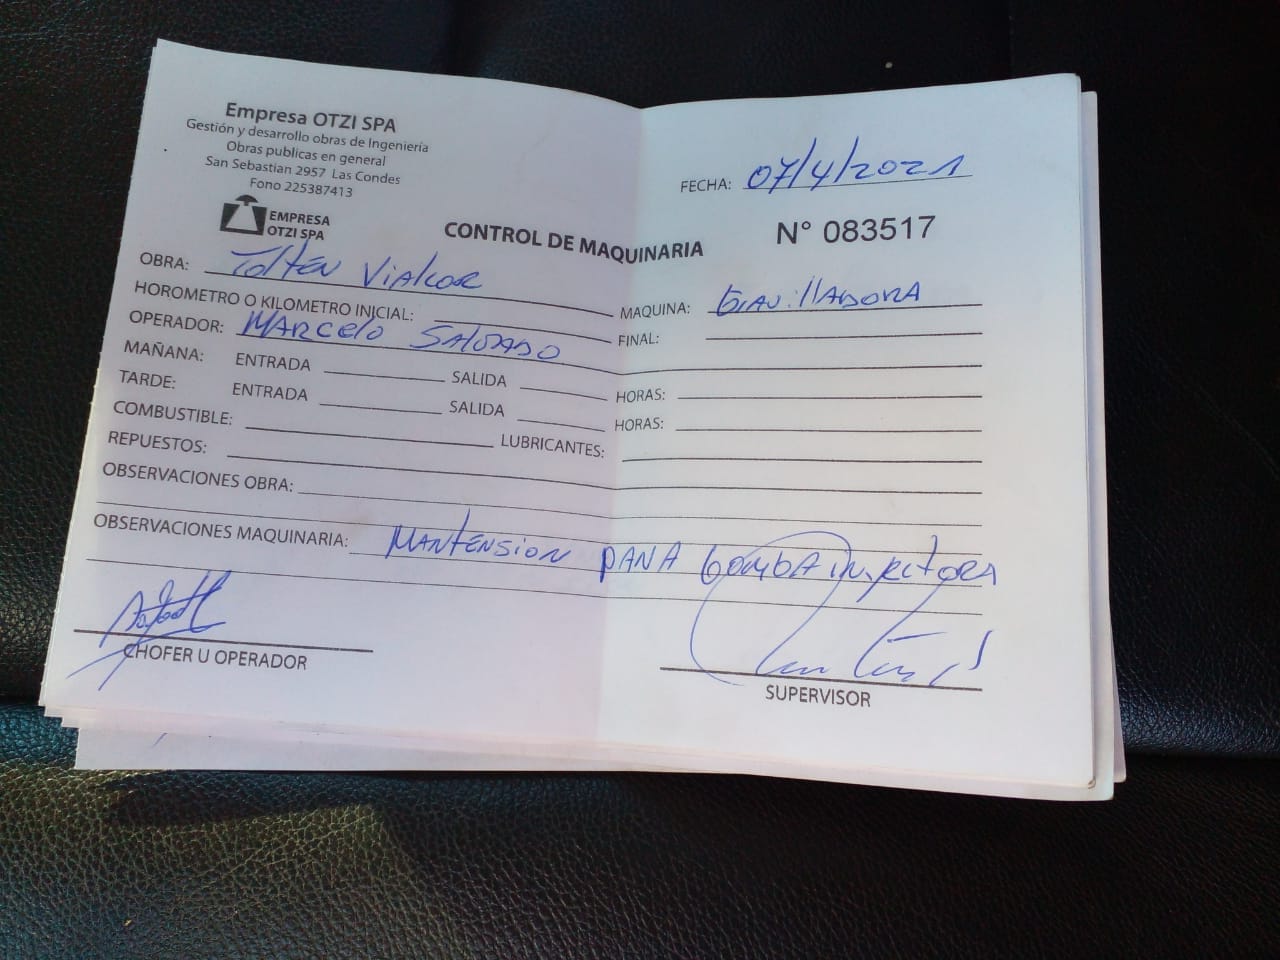 Empresa OTZI SPA
Gestión y desarrollo obras de Ingeniería
Obras publicas en general
San Sebastian 2957 Las Condes
Fono 225387413
EMPRESA
OTZI SPA
FECHA: 07/4/2021
CONTROL DE MAQUINARIA
N° 083517
OBRA: Toltén Vialcor
MAQUINA: GravillADORA
HOROMETRO O KILOMETRO INICIAL:
FINAL:
OPERADOR: MARCElo SAlGADO
MAÑANA: ENTRADA SALIDA HORAS:
TARDE: ENTRADA SALIDA HORAS:
COMBUSTIBLE: LUBRICANTES:
REPUESTOS:
OBSERVACIONES OBRA:
OBSERVACIONES MAQUINARIA: MANTENSION PANA bombA inyectora
CHOFER U OPERADOR
SUPERVISOR